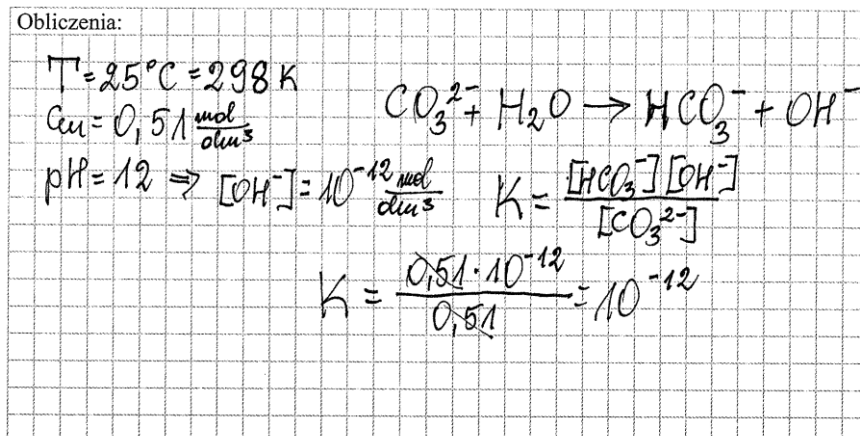 Obliczenia:
T = 25°C = 298 K
Cm = 0,51 mol/dm³
CO₃²⁻ + H₂O → HCO₃⁻ + OH⁻
pH = 12 ⇒ [OH⁻] = 10⁻¹² mol/dm³
K = [HCO₃⁻][OH⁻]/[CO₃²⁻]
K = 0,51·10⁻¹²/0,51 = 10⁻¹²